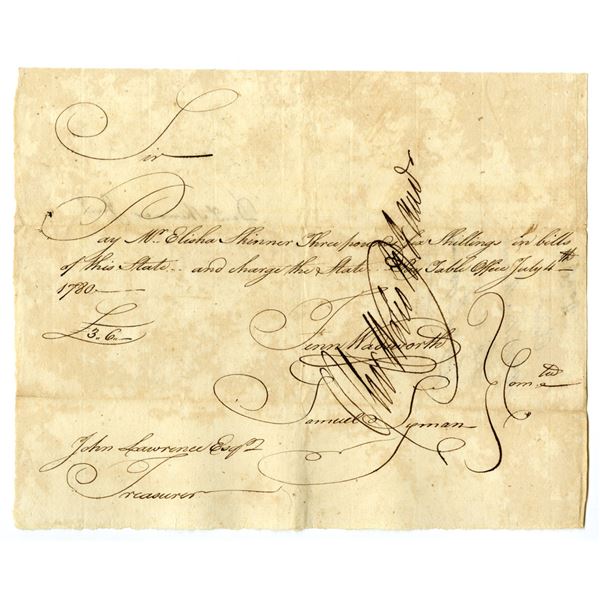 Sir
Pay Mr. Elisha Skinner Three Six Shillings in bills
of this State - and charge the State - Pay Table Office July 4th
1780
£3.6.
Fenn Wadsworth
Samuel Lyman
Comtee
John Lawrence Esqr
Treasurer